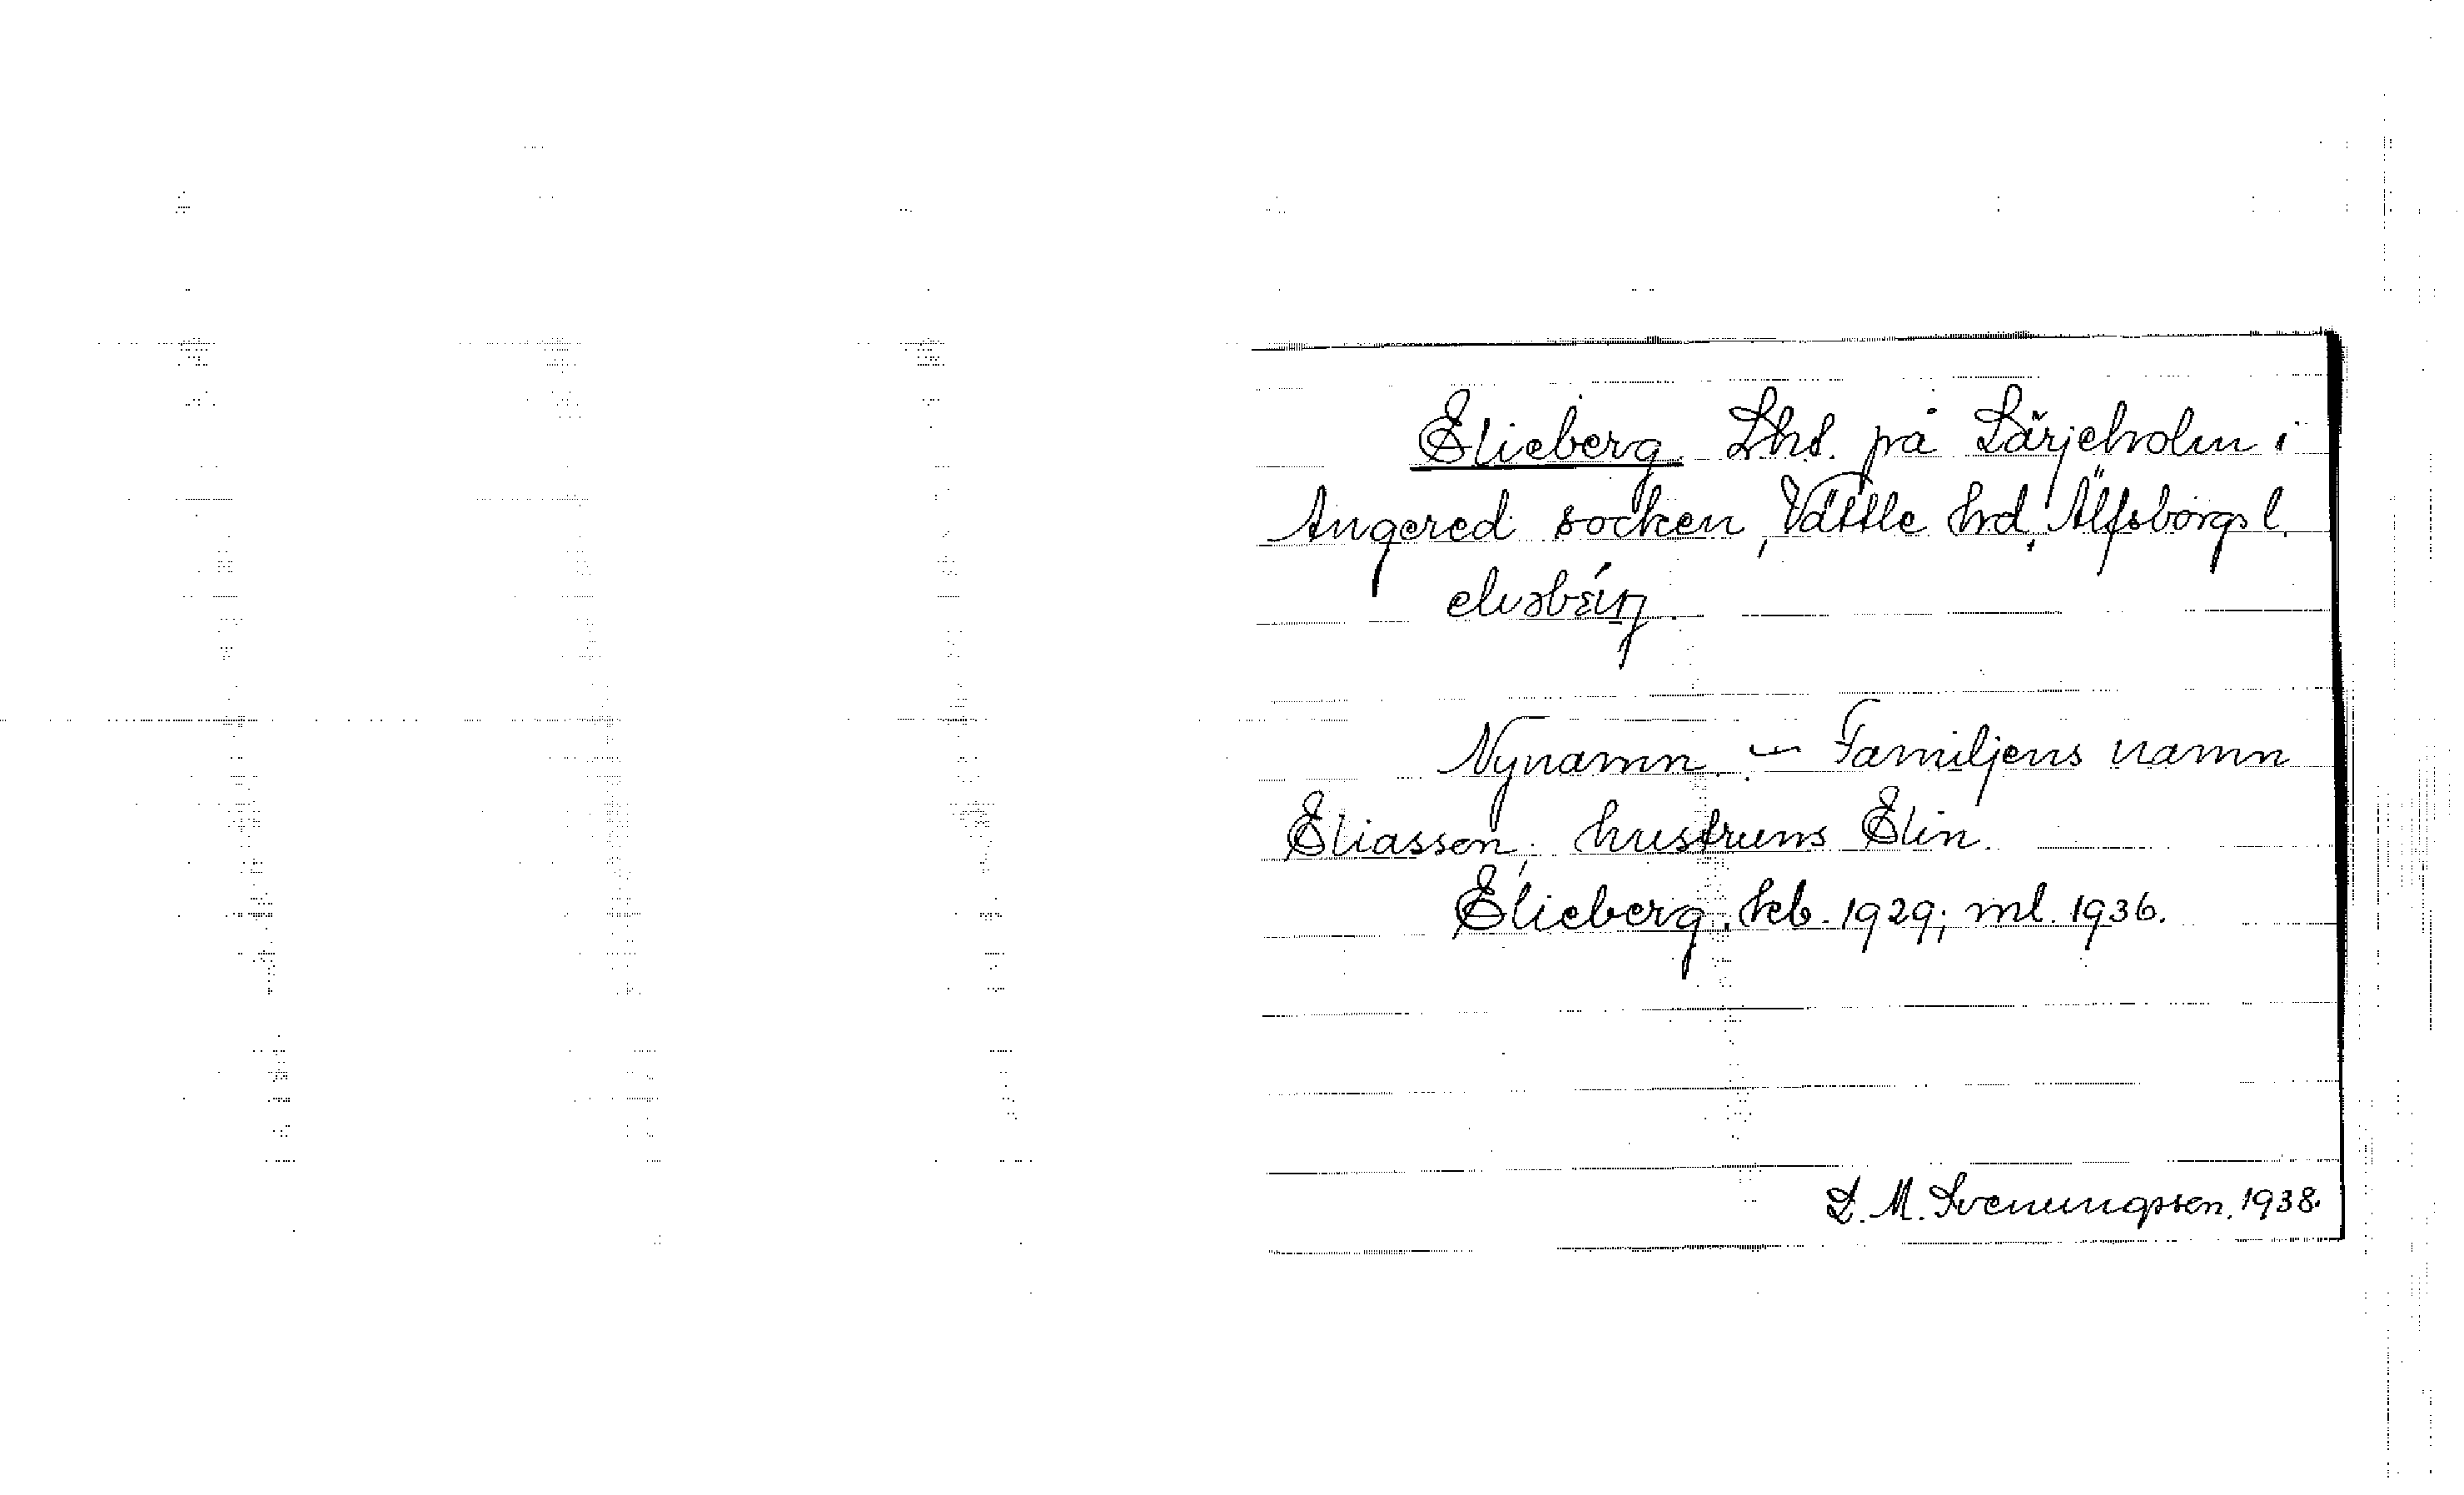 Elieberg. Lhs. på Lärjeholm i
Angered socken, Vättle hrd, Älfsborgs l.
Nynamn. — Familjens namn
Eliasson; hustruns Elin.
Elieberg. heb. 1929; ml. 1936.
L. M. Svenungsson. 1938.